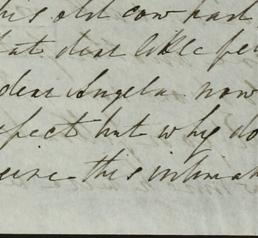 his old cow had
that dear little fe
dear Angela now
pect but why do
this intima